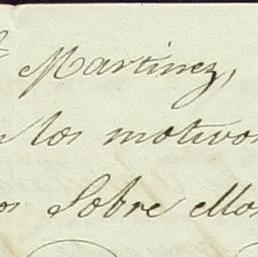 Martinez,
los motivos
Sobre ellos